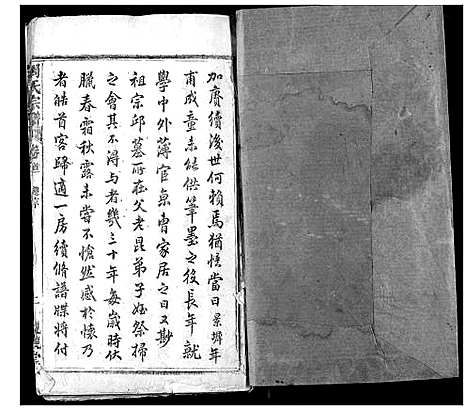 加赓續後世何賴焉猶憶當日景壎年
甫成童未能供筆墨之役長年就
學中外薄官京曹家居之日又尠
祖宗邱墓所在父老昆弟子姪祭掃
之會其不淂与者幾三十年每歲時伏
臘春霜秋露未嘗不愴然感於懷乃
者皓首客歸適一房續脩譜牒將付
周氏宗譜 卷首